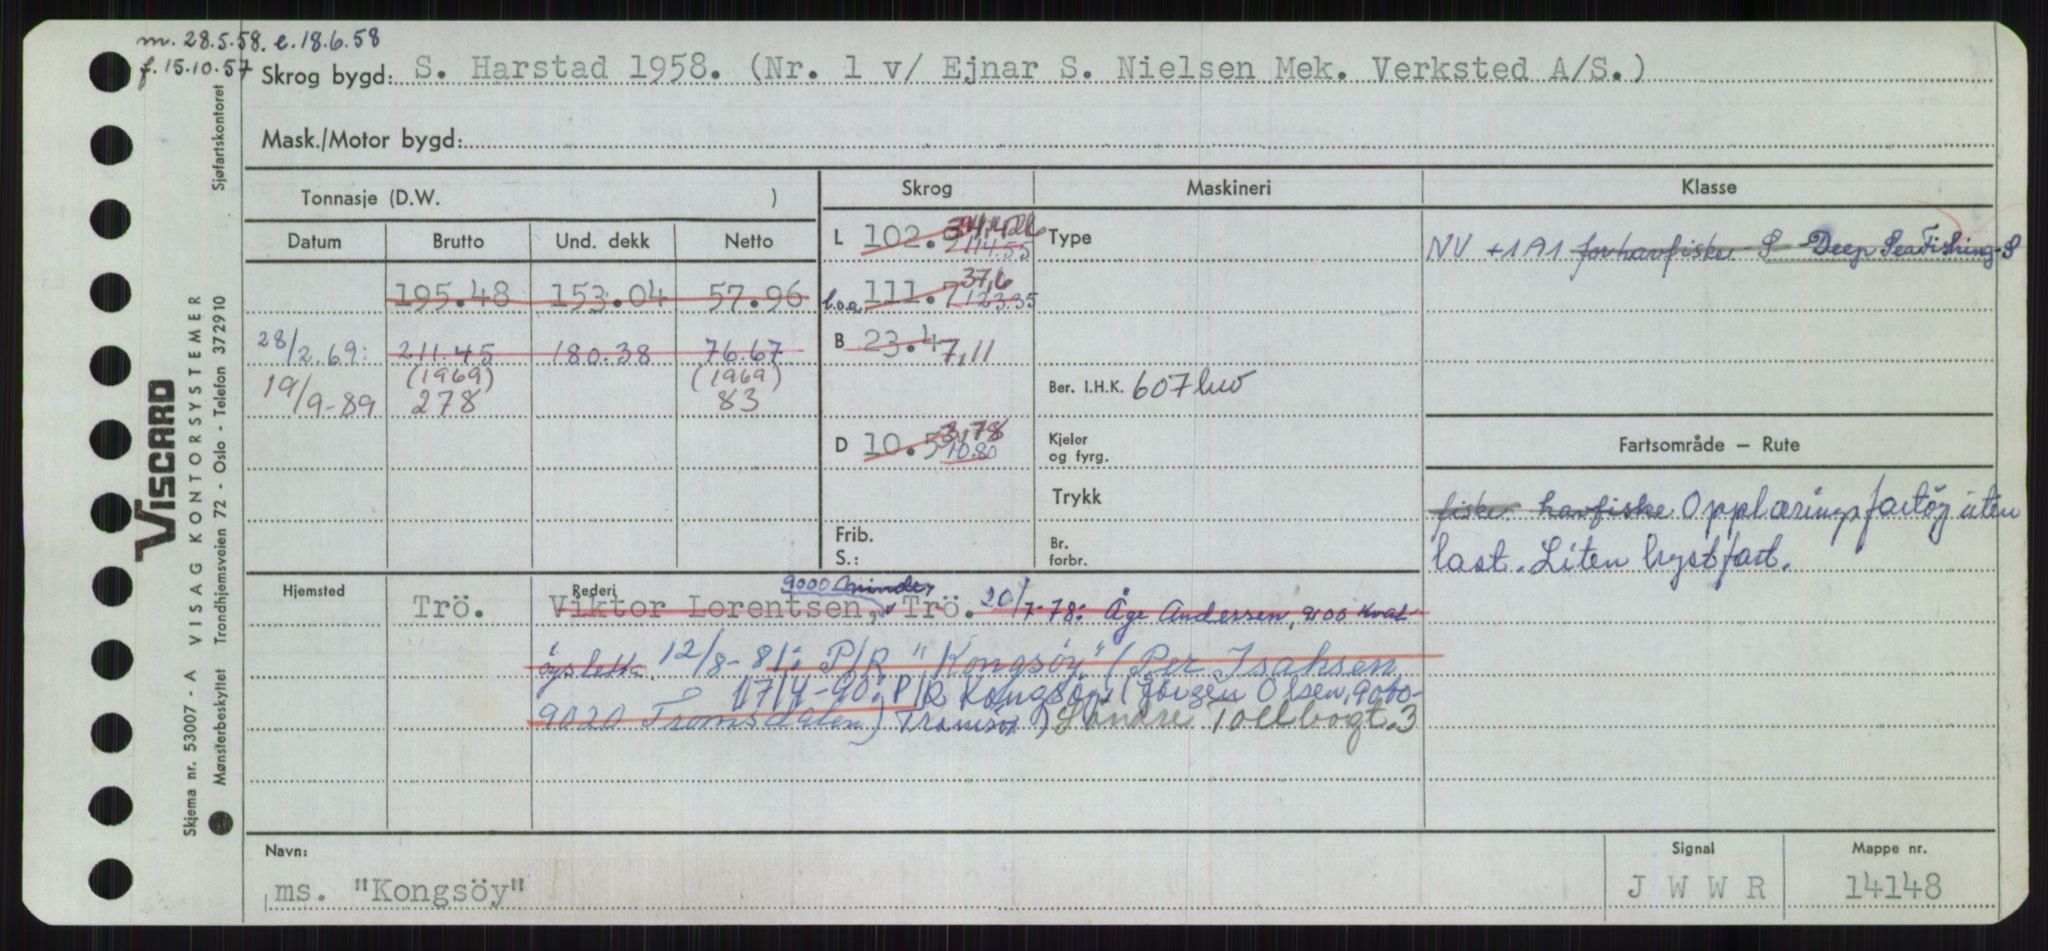 m. 28.5.58. e. 18.6.58
f. 15.10.57
Skrog bygd: S. Harstad 1958. (Nr. 1 v/ Ejnar S. Nielsen Mek. Verksted A/S.)
Mask./Motor bygd:
Tonnasje (D.W. )
Skrog
Maskineri
Klasse
Datum Brutto Und. dekk Netto
195.48 153.04 57.96
28/2.69: 211.45 180.38 76.67
(1969) (1969)
19/9-89 278 83
L 102. 114.55
l.o.a. 111.7 37,6 123.35
B 23.4 7,11
D 10.5 3,78 10.80
Frib.
S.:
Type
Ber. I.H.K. 607
Kjeler
og fyrg.
Trykk
Br.
forbr.
NV +1A1 for havfiske S Deep Sea Fishing S
Fartsområde — Rute
fiske havfiske Opplæringsfartöy uten
last. Liten kystfart.
Hjemsted
Rederi
9000
Trö. Viktor Lorentsen, Trö. 20/7-78: Åge Andersen, 9100 Kval-
öysletta. 12/8-81: P/R "Kongsöy" (Per Isaksen
17/4-90: P/R Kongsöy (Jörgen Olsen, 9000-
9020 Tromsdalen) Tromsö) Söndre Tollbogt. 3
Navn:
ms. "Kongsöy"
Signal
J W W R
Mappe nr.
14148
VISCARD
VISAG KONTORSYSTEMER
Skjema nr. 53007 - A
Sjøfartskontoret
Trondhjemsveien 72 - Oslo - Telefon 372910
Mønsterbeskyttet